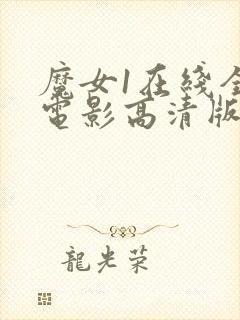 魔女1在线全
電影高清版
龍光荣